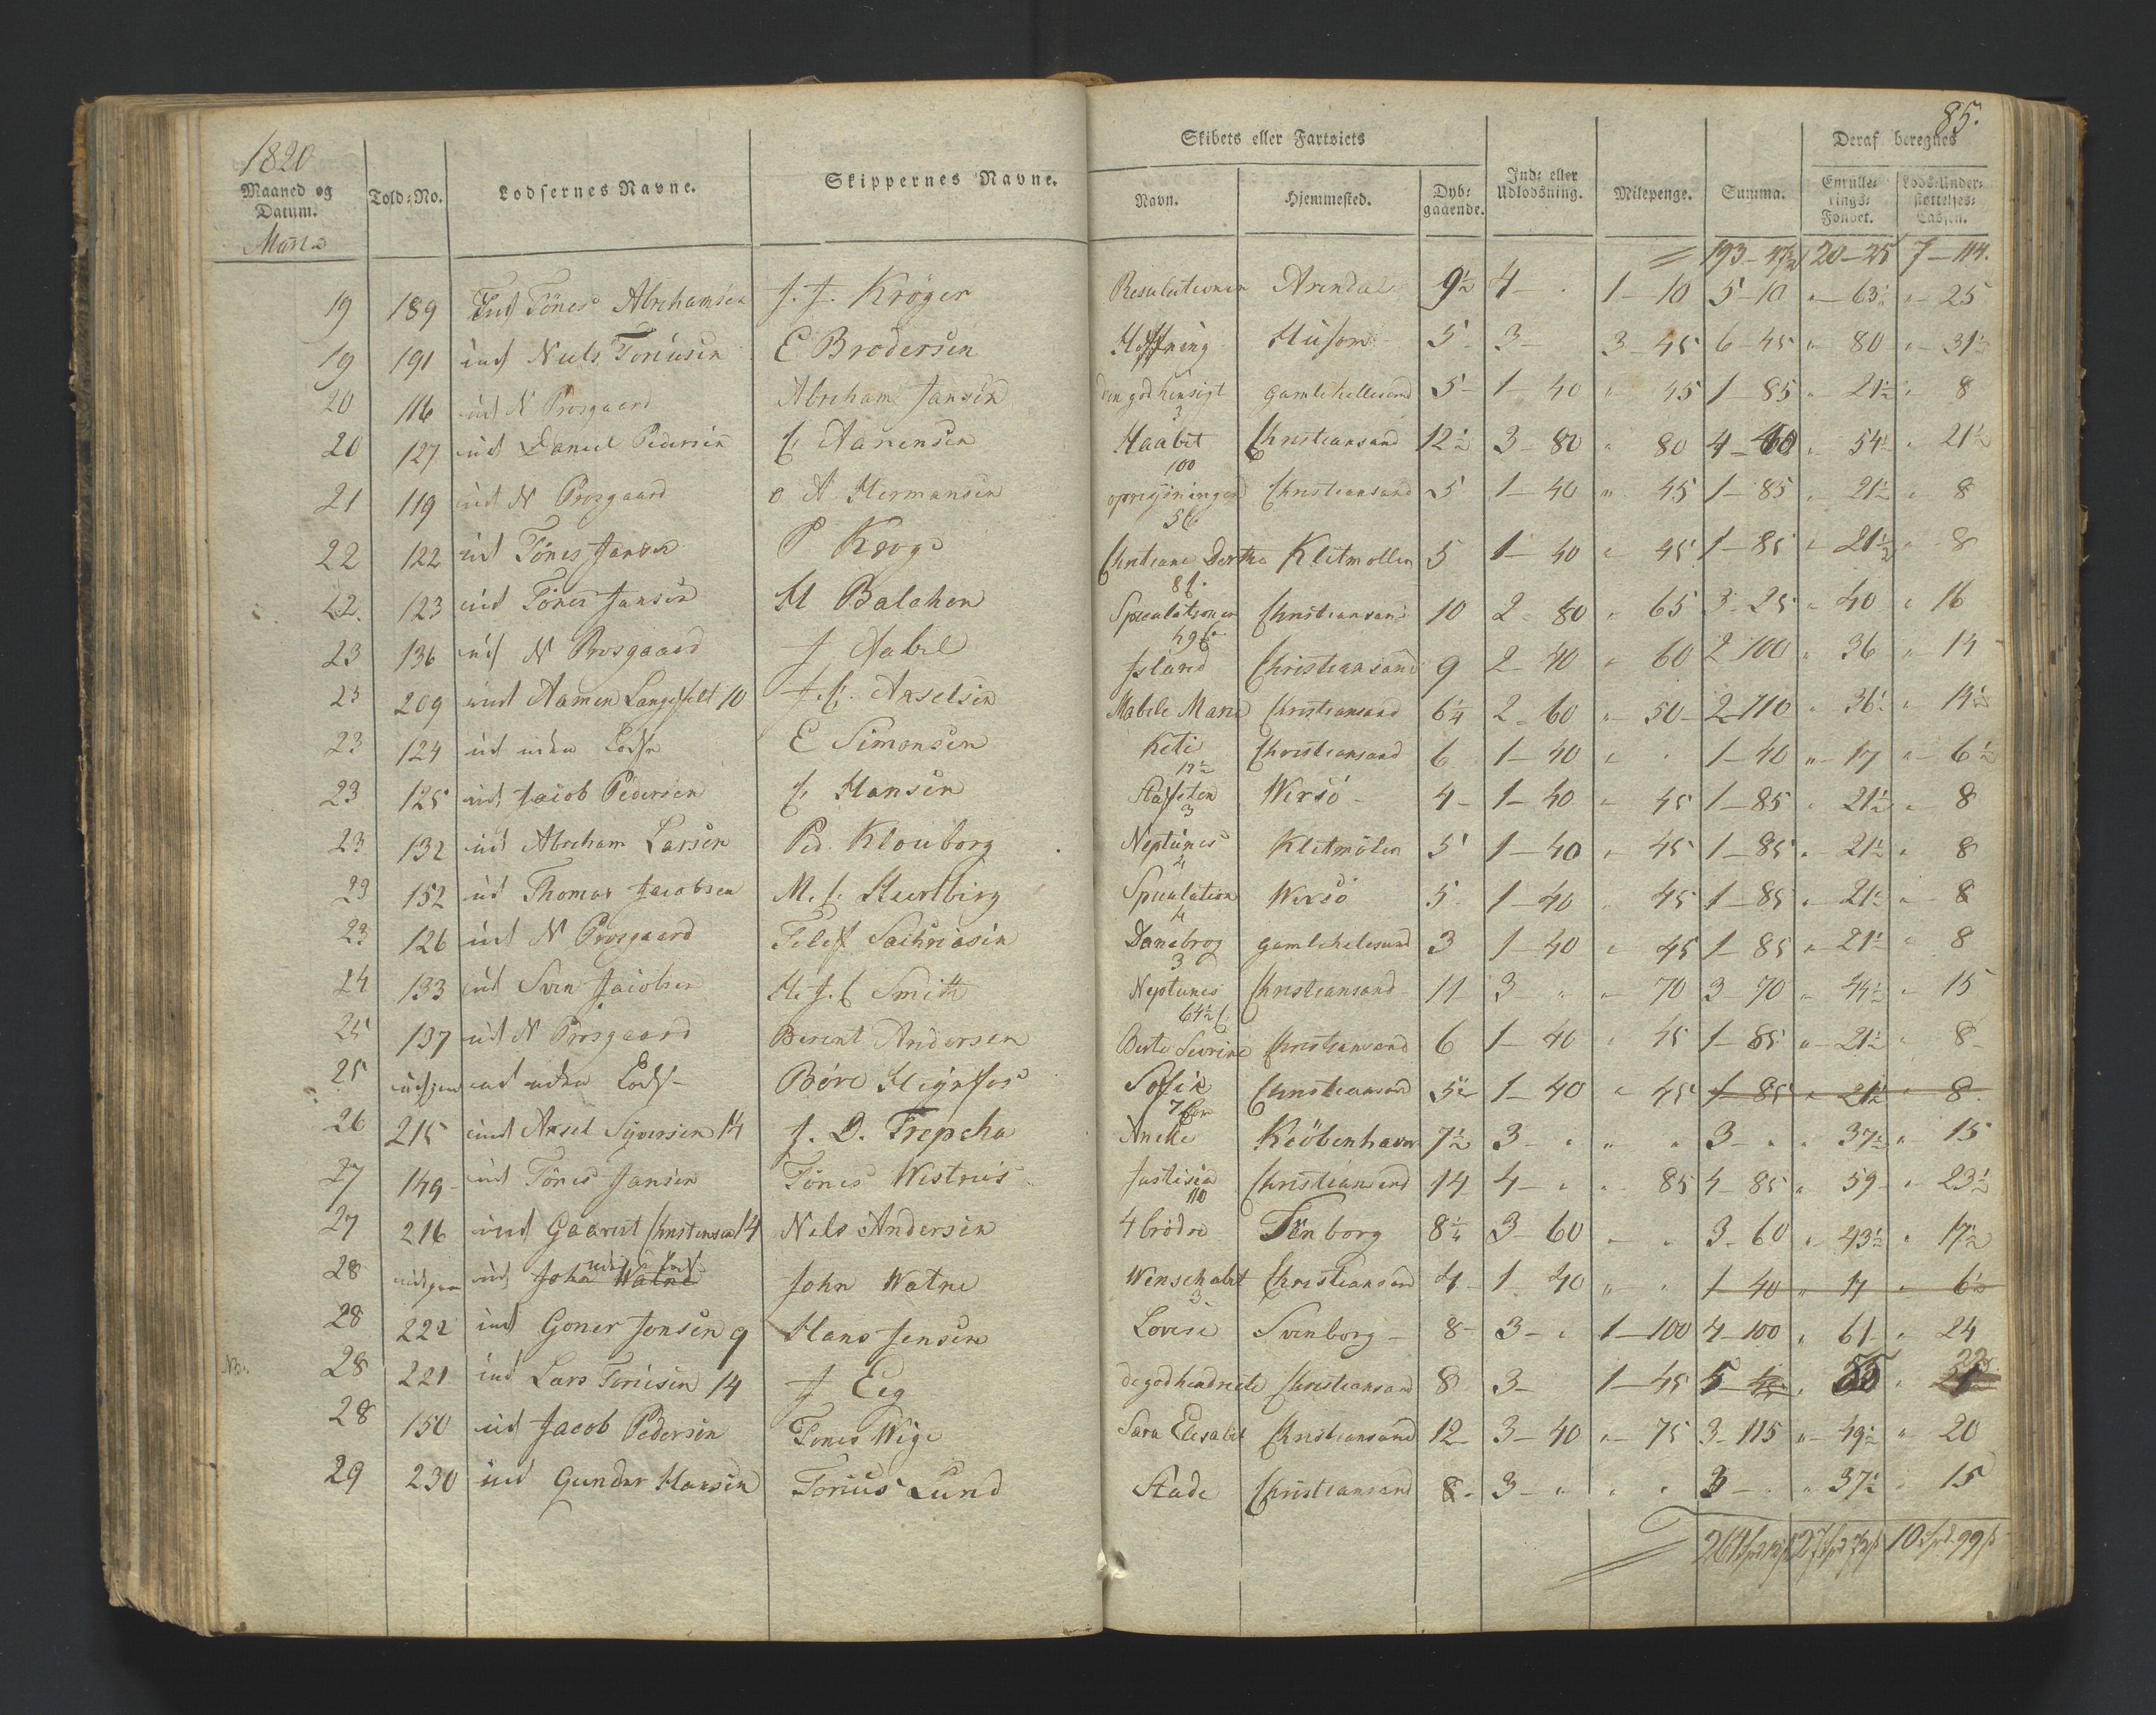 85.
1820
Maaned og Datum. Told-No. Lodsernes Navne. Skippernes Navne. Skibets eller Fartøiets Navn. Hjemmested. Dybgaaende. Ind- eller Udlodsning. Milepenge. Summa. Deraf beregnes Enrullerings-Fondet. Lods-Understøttelses-Cassen.
Martz
20 — 25 7 — 114.
19 189 Ind Tönes Abrehamsen J. J. Kröger Resulutionen Arendal 9½ 4 — . 1 — 10 5 — 10 „ — 63½ „ — 25
19 191 ind Niels Toriusen E Brodersen Hoffning Husom 5 — 3 — 3 — 45 6 — 45 „ — 80 „ — 31½
20 116 ud N Prosgaard Abreham Jansen den god hensigt gamlehellesund 5 — 1 — 40 „ 45 1 — 85 „ — 21½ „ 8
3
20 127 ud Daniel Pedersen C Aanensen Haabet Christiansand 12½ 3 — 80 „ 80 4 — 40 „ 54½ „ 21½
100
21 119 ud N Prosgaard o A Hermansen opreisningen Christiansand 5 1 — 40 „ 45 1 — 85 „ 21½ „ 8
56
22 122 ud Tönes Jansen P Kroge Christiane Dorthe Klitmøllen 5 1 — 40 „ 45 1 — 85 „ 21½ „ 8
8
22. 123 ud Tönes Jansen H Balchen Speculationen Christiansand 10 2 — 80 „ 65 3 — 25 „ 40 „ 16
23 136 ud N Prosgaard J Aabel Island Christiansand 9 2 — 40 „ 60 2 100 „ 36 „ 14
23 209 ind Aamen Langefelt 10 J. C. Axselsen Mabele Maria Christiansand 6¼ 2 — 60 „ 50 — 2 — 110 „ 36½ „ 14½
23 124 ud uden Lods E Simonsen Keti Christiansand 6 1 — 40 „ „ 1 — 40 „ — 17 „ — 6½
17½
23 125 ud Jacob Pedersen C Hansen Stafeten Wersö — 4 — 1 — 40 „ 45 1 — 85 „ 21½ „ 8
3
23 132 ud Abreham Larsen Ped. Klouborg Neptunes Kletmölen 5 1 — 40 „ 45 1 — 85 „ 21½ „ 8
4
23 152 ud Thomas Jacobsen M. C. Hertberg Speculation Wersö 5 1 — 40 „ 45 1 — 85 „ 21½ „ 8
4
23 126 ud N Prosgaard Telef Sachriasen Danebrog gamlehelesund 3 1 — 40 „ 45 1 — 85 „ — 21½ „ 8
3
24 133 ud Sven Jacobsen H. J. C Smith Neptunes Christiansand 11 3 — „ „ — 70 3 — 70 „ 44½ „ 15
64½ C
25 137 ud N Prosgaard Berent Andersen Berte Sevrine Christiansand 6 1 — 40 „ 45 1 — 85 „ 21½ „ 8
25 udgaar ud uden Lods Böre Höynfos Sofie Christiansand 5½ 1 — 40 „ 45 1 — 85 „ 21½ „ 8
26 215 ind Aksel Syversen 14 J. D. Trepcha Aneke Kiöbenhavn 7½ 3 — „ „ „ 3 — „ „ 37½ „ 15
27 149 ud Tönes Jansen Tönes Westnes Justisia Christiansand 14 4 — „ „ 85 4 — 85 „ 59 „ 23½
110
27 216 ind Gaarut Christensen 14 Nels Andersen 4 brödre Tönborg 8¼ 3 — 60 „ „ 3 — 60 „ 43½ „ 17½
28 udgaar ud John Watne uden Lods John Watne Wenschabet Christiansand 4 — 1 — 40 „ „ 1 — 40 „ 17 „ 6½
3
28 222 ind Goner Jonsen 9 Hans Jensen Lovise Svenborg — 8 — 3 — „ 1 — 100 4 — 100 „ 61 „ 24
NB. 28 221 ind Lars Torisen 14 J Eeg Christiansand 8 3 — 1 — 45 55 22
28 150 ud Jacob Pedersen Tönes Wige Sara Elesabet Christiansand 12 3 — 40 „ — 75 3 — 115 „ 49½ „ 20
29 230 ind Gunder Hansen Torius Lund Stade Christiansand 8 — 3 — „ „ „ 3 — „ „ 37½ „ 15
10 Spd. 99 ß